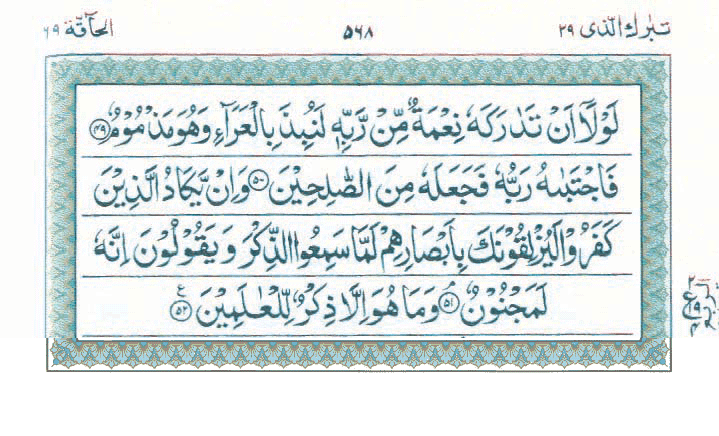 تبٰرك الّذى ٢٩ ٥٦٨ الحآقّة ٦٩
لَوْلَاۤ اَنْ تَدٰرَكَهٗ نِعْمَةٌ مِّنْ رَّبِّهٖ لَنُبِذَ بِالْعَرَآءِ وَهُوَ مَذْمُوْمٌ ﴿٤٩﴾
فَاجْتَبٰىهُ رَبُّهٗ فَجَعَلَهٗ مِنَ الصّٰلِحِيْنَ ﴿٥٠﴾ وَاِنْ يَّكَادُ الَّذِيْنَ
كَفَرُوْا لَيُزْلِقُوْنَكَ بِاَبْصَارِهِمْ لَمَّا سَمِعُوا الذِّكْرَ وَيَقُوْلُوْنَ اِنَّهٗ
لَمَجْنُوْنٌۘ ﴿٥١﴾ وَمَا هُوَ اِلَّا ذِكْرٌ لِّلْعٰلَمِيْنَ ﴿٥٢﴾ ع